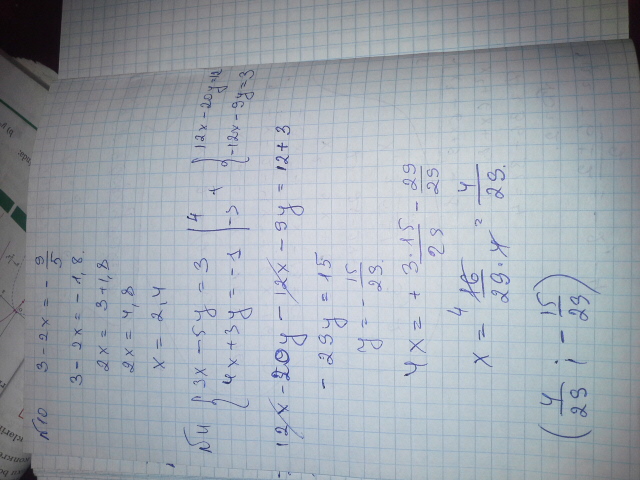 №10 3 - 2x = - 9/5
3 - 2x = -1,8.
2x = 3+1,8
2x = 4,8
x = 2,4
№11 { 3x - 5y = 3 | 4 + { 12x - 20y = 12
4x + 3y = -1 | -3 -12x - 9y = 3
12x - 20y - 12x - 9y = 12 + 3
- 29y = 15
y = - 15/29.
4x = + 3·15/29 - 29/29
x = 4 16/29·4 = 4/29.
( 4/29 ; - 15/29 )